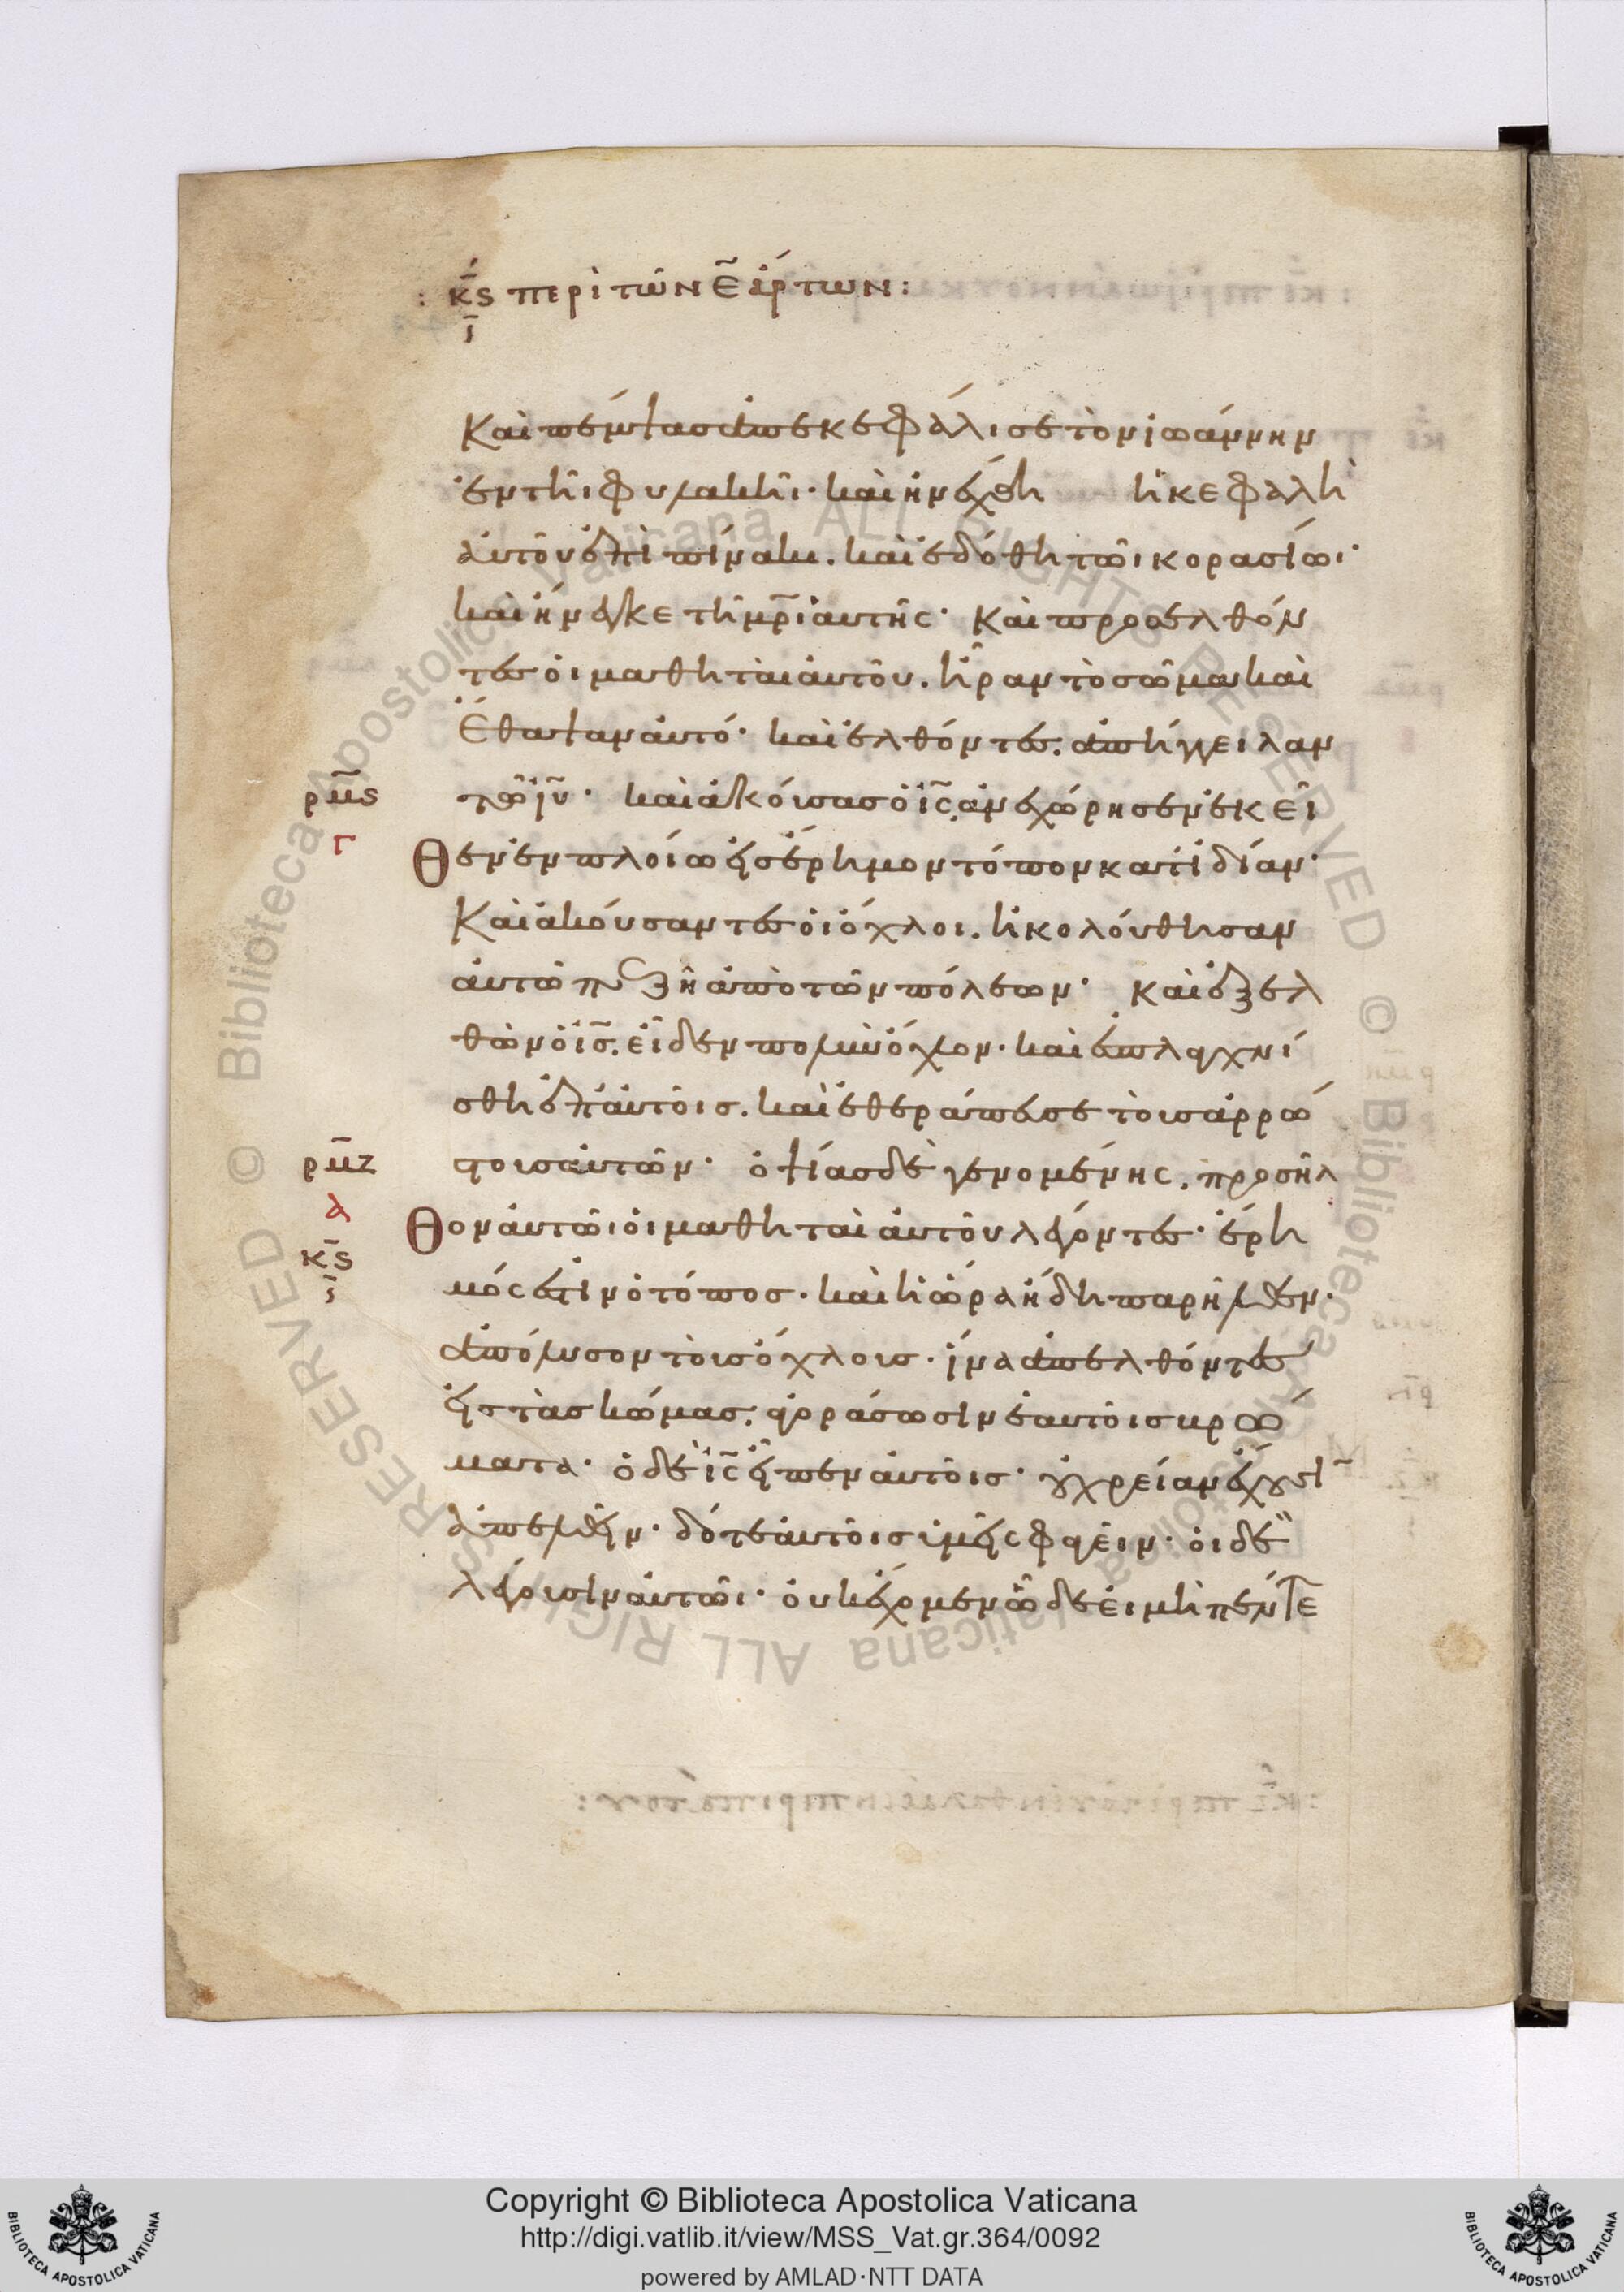 : κϛ περὶ τῶν ε̄ ἄρτων :
ι
Καὶ πέμψας ἀπεκεφάλισε τὸν ἰωάννην
ἐν τῆι φυλακῆι· καὶ ἠνέχθη ἡ κεφαλὴ
αὐτοῦ ἐπὶ πίνακι. καὶ ἐδόθη τῶι κορασίωι·
καὶ ἤνεγκε τῆ μρ̄ὶ αὐτῆς· Καὶ προσελθόν
τες οἱ μαθηταὶ αὐτοῦ. ἦραν τὸ σῶμα καὶ
Ἔθαψαν αὐτό· καὶ ἐλθόντες. ἀπήγγειλαν
ρμϛ τῶ ἰῡ· καὶ ἀκούσας ὁ ἰς̄, ἀνεχώρησεν ἐκεῖ
γ
Θεν ἐν πλοίω εἰς ἔρημον τόπον κατ' ἰδίαν·
Καὶ ἀκούσαντες οἱ ὄχλοι. ἠκολούθησαν
αὐτῶ πεζῆ ἀπὸ τῶν πόλεων· Καὶ ἐξελ
θὼν ὁ ἰς̄. εἶδεν πολὺν ὄχλον· καὶ ἐσπλαγχνί
σθη ἐπ' αὐτοῖς. καὶ ἐθεράπευσε τοὺς ἀρρώ
ρμζ στους αὐτῶν· ὀψίας δὲ γενομένης, προσῆλ
α
Θον αὐτῶι οἱ μαθηταὶ αὐτοῦ λέγοντες· ἔρη
κϛ
ι
μός ἐστιν ὁ τόπος· καὶ ἡ ὥρα ἤδη παρῆλθεν·
ἀπόλυσον τοὺς ὄχλους· ἵνα ἀπελθόντες
εἰς τὰς κώμας. ἀγοράσωσιν ἑαυτοῖς βρώ
ματα· ὁ δὲ ἰς̄ εἶπεν αὐτοῖς· οὐ χρείαν ἔχουσῖ
ἀπελθεῖν· δότε αὐτοῖς ὑμεῖς φαγεῖν· οἱ δὲ
λέγουσιν αὐτῶι· οὐκ ἔχομεν ὧδε εἰ μὴ πέντε
Copyright © Biblioteca Apostolica Vaticana
http://digi.vatlib.it/view/MSS_Vat.gr.364/0092
powered by AMLAD·NTT DATA